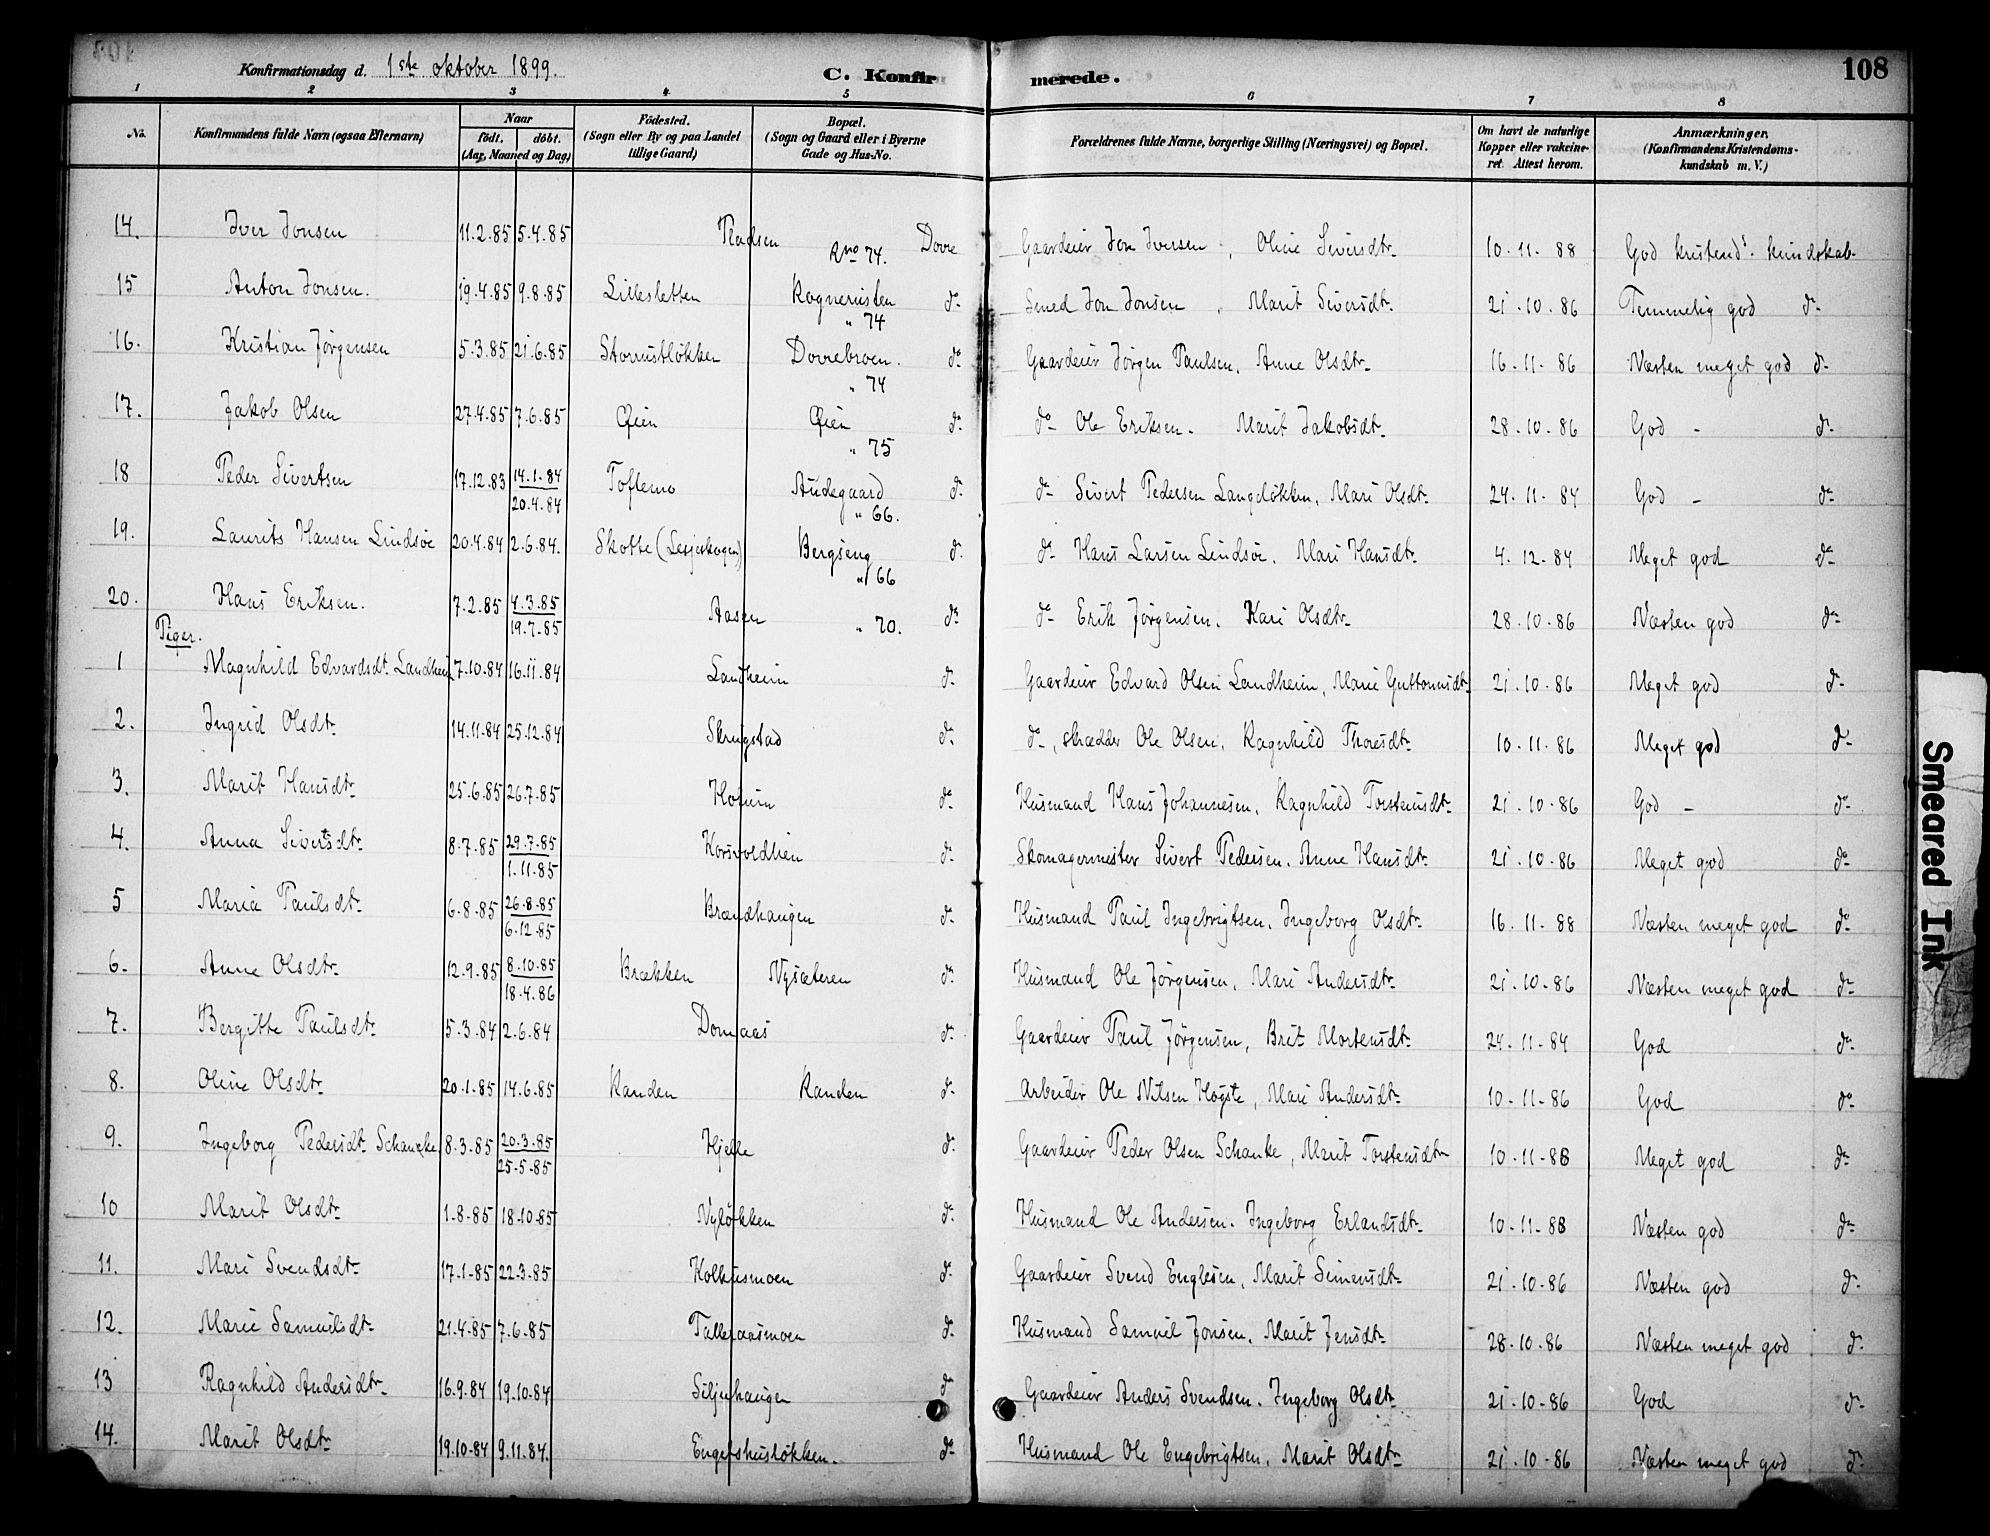 Konfirmationsdag d. 1ste oktober 1899. C. Konfirmerede. 108
1 2 3 4 5 6 7 8
No. Konfirmandens fulde Navn (ogsaa Efternavn) Naar født. døbt. (Aar, Maaned og Dag) Fødested. (Sogn eller By og paa Landet tillige Gaard) Bopæl. (Sogn og Gaard eller i Byerne Gade og Hus-No. Forældrenes fulde Navne, borgerlige Stilling (Næringsvei) og Bopæl. Om havt de naturlige Kopper eller vakcineret. Attest herom. Anmærkninger. (Konfirmandens Kristendomskundskab m. V.)
14. Iver Jonsen 11.2.85 5.4.85 Dovre Gaardeier Jon Iversen, Oline Siversdtr 10-11-88 God kristend. kundskab.
Rno 74.
15 Anton Jonsen. 19.4.85 9.8.85 Lillesletten Rognerusten do Smed Jon Jonsen, Marit Siversdtr 21-10-86 Temmelig god do
" 74
16. Kristian Jørgensen 5.3.85 21.6.85 Dovrebroen. do Gaardeier Jørgen Paulsen, Anne Olsdtr 16-11-86 Næsten meget god do
" 74
17. Jakob Olsen 27.4.85 7.6.85 do do Ole Eriksen. Marit Jakobsdtr 28-10-86 God - do
" 75
18 Peder Sivertsen 17.12.83 14.1.84 20.4.84 Toftemo Audegaard do do Sivert Pedersen Langeløkken, Mari Olsdtr 24-11-84 God - do
" 66.
19. Laurits Hansen Lindsøe 20.4.84 2.6.84. Skotte (Lesjeskogen) Bergseng do do Hans Larsen Lindsøe, Mari Hansdtr 4-12-84 Meget god do
" 66
20. Hans Eriksen. 7.2.85 4.3.85 19.7.85 Aasen " 70. do do Erik Jørgensen. Kari Olsdtr 28-10-86 Næsten god do
Piger.
1 Magnhild Edvardsdt. Landheim 7.10.84 16.11.84 Landheim do Gaardeier Edvard Olsen Landheim, Marie Guttormsdt. 21-10-86 Meget god do
2. Ingrid Olsdtr 14.11.84 25.12.84 Skrugstad do do, skrædder Ole Olsen. Ragnhild Thoresdtr 10-11-86 Meget god do
3. Marit Hansdtr 25.6.85 26.7.85 do Husmand Hans Johannesen. Ragnhild Torstensdtr 21-10-86 God - do
4. Anna Sivertsdtr 8.7.85 29.7.85 1.11.85 Korsvoldhien do Skomagermester Sivert Pedersen. Anne Hansdtr 21-10-86 Meget god do
5 Maria Paulsdtr 6.8.85 26.8.85 6.12.85 Brændhaugen do Husmand Paul Ingebrigtsen. Ingeborg Olsdtr 16-11-88 Næsten meget god do
6. Anne Olsdtr 12.9.85 8.10.85 18.4.86 Brækken Nysæteren do Husmand Ole Jørgensen. Mari Andersdtr 21-10-86 Næsten meget god do
7. Bergitte Paulsdtr 5.3.84 2.6.84 Domaas do Gaardeier Paul Jørgensen, Brit Mortensdtr 24-11-84 God do
8. Oline Olsdtr 20.1.85 14.6.85 Randen Randen do Arbeider Ole Nilsen Høgste, Mari Andersdtr 10-11-86 God do
9. Ingeborg Pedersdt. Schancke 8.3.85 20.3.85 25.5.85 Hjelle do Gaardeier Peder Olsen Schanke, Marit Torstensdtr 10-11-88 Meget god do
10 Marit Olsdtr 1.8.85 18.10.85 Nyløkken do Husmand Ole Andersen. Ingeborg Erlandsdtr 10-11-88 Næsten god do
11. Mari Svendsdtr 17.1.85 22.3.85 Kolhusmoen do Gaardeier Svend Englesen, Marit Simensdtr 21-10-86 Næsten god do
12. Marie Samuelsdtr 21.4.85 7.6.85 Talleraasmoen do Husmand Samuel Jonsen. Marit Jensdtr 28-10-86 Næsten meget god do
13 Ragnhild Andersdtr 16.9.84 19.10.84 Siljuhaugen do Gaardeier Anders Svendsen. Ingeborg Olsdtr 21-10-86 God do
14. Marit Olsdtr 19.10.84 9.11.84. Engelshusløkken. do Husmand Ole Engebrigtsen, Marit Olsdtr 21-10-86 Næsten meget god do
Smeared Ink